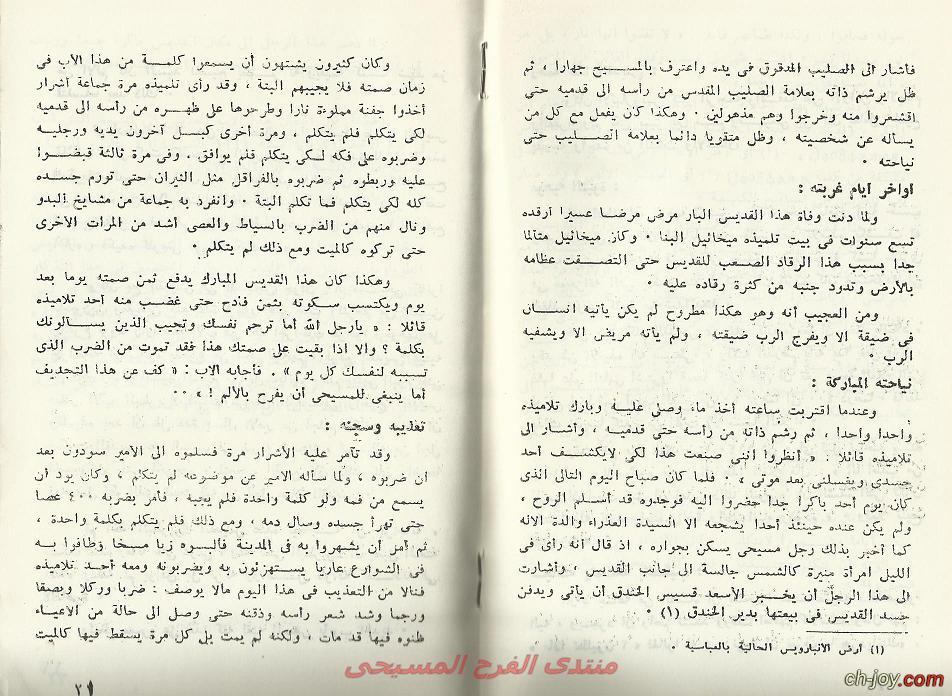 فأشار الى الصليب المدقوق فى يده واعترف بالمسيح جهارا ، ثم
ظل يرشم ذاته بعلامة الصليب المقدس من رأسه الى قدميه حتى
اقشعروا منه وخرجوا وهم مذهولين . وهكذا كان يفعل مع كل من
يسأله عن شخصيته ، وظل متقويا دائما بعلامة الصليب حتى
نياحته .
أواخر أيام غربته :
ولما دنت وفاة هذا القديس البار مرض مرضا عسيرا أرقده
تسع سنوات فى بيت تلميذه ميخائيل البنا . وكان ميخائيل متألما
جدا بسبب هذا الرقاد الصعب للقديس حتى التصقت عظامه
بالأرض وتدود جنبه من كثرة رقاده عليه .
ومن العجيب أنه وهو هكذا مطروح لم يكن يأتيه انسان
فى ضيقة الا ويفرج الرب ضيقته ، ولم يأته مريض الا ويشفيه
الرب .
نياحته المباركة :
وعندما اقتربت ساعته أخذ ماء وصلى عليه وبارك تلاميذه
واحدا واحدا ، ثم رشم ذاته من رأسه حتى قدميه ، وأشار الى
تلاميذه قائلا : « أنظروا اننى صنعت هذا لكى لايكشف أحد
جسدى ويغسلنى بعد موتى » . فلما كان صباح اليوم التالى الذى
كان يوم أحد باكرا جدا حضروا اليه فوجدوه قد أسلم الروح ،
ولم يكن عنده حينئذ أحدا يشجعه الا السيدة العذراء والدة الاله
كما أخبر بذلك رجل مسيحى يسكن بجواره ، اذ قال أنه رأى فى
الليل امرأة منيرة كالشمس جالسة الى جانب القديس ، وأشارت
الى هذا الرجل أن يخبر الأسعد قسيس الخندق أن يأتى ويدفن
جسد القديس فى بيعتها بدير الخندق (١) .
(١) أرض الأنبارويس الحالية بالعباسية .
وكان كثيرون يشتهون أن يسمعوا كلمة من هذا الأب فى
زمان صمته فلا يجيبهم البتة ، وقد رأى تلميذه مرة جماعة أشرار
أخذوا جفنة مملوءة نارا وطرحوها على ظهره من رأسه الى قدميه
لكى يتكلم فلم يتكلم ، ومرة أخرى كبل آخرون يديه ورجليه
وضربوه على فكه لكى يتكلم فلم يوافق . وفى مرة ثالثة قبضوا
عليه وربطوه ثم ضربوه بالفراقل مثل الثيران حتى تورم جسده
كله لكى يتكلم فما تكلم البتة . وانفرد به جماعة من مشايخ البدو
ونال منهم من الضرب بالسياط والعصى أشد من المرات الأخرى
حتى تركوه كالميت ومع ذلك لم يتكلم .
وهكذا كان هذا القديس المبارك يدفع ثمن صمته يوما بعد
يوم ويكتسب سكوته بثمن فادح حتى غضب منه أحد تلاميذه
قائلا : « يارجل الله أما ترحم نفسك وتجيب الذين يسألونك
بكلمة ؟ والا اذا بقيت على صمتك هذا فقد تموت من الضرب الذى
تسببه لنفسك كل يوم » . فأجابه الأب : « كف عن هذا التجديف
أما ينبغى للمسيحى أن يفرح بالألم ! » ..
تعذيبه وسجنه :
وقد تآمر عليه الأشرار مرة فسلموه الى الأمير سودون بعد
أن ضربوه ، ولما سأله الأمير عن موضوعه لم يتكلم ، وكان يود أن
يسمع من فمه ولو كلمة واحدة فلم يجبه ، فأمر بضربه ٤٠٠ عصا
حتى تهرأ جسده وسال دمه ، ومع ذلك فلم يتكلم بكلمة واحدة ،
ثم أمر أن يشهروا به فى المدينة فألبسوه زيا مسخا وطافوا به
فى الشوارع عاريا يستهزئون به ويضربونه ومعه أحد تلاميذه
فنالا من التعذيب فى هذا اليوم مالا يوصف : ضربا وركلا وبصقا
ورجما وشد شعر رأسه وذقنه حتى وصل الى حالة من الاعياء
ظنوه فيها قد مات ، ولكنه لم يمت بل كل مرة يسقط فيها كالميت
٢١
منتدى الفرح المسيحى
ch-joy.com